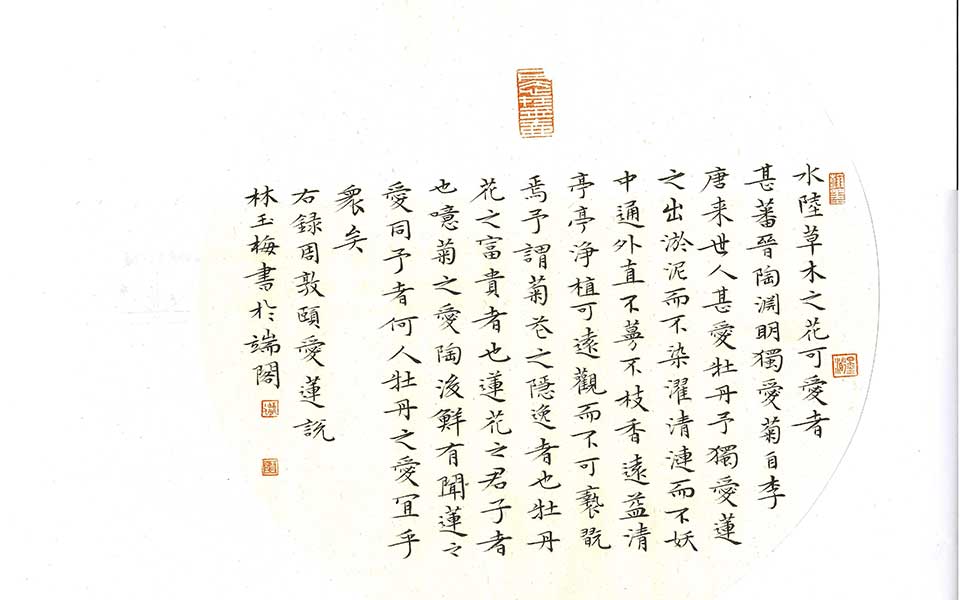 水陸草木之花可愛者
甚蕃晉陶渕明獨愛菊自李
唐来世人甚愛牡丹予獨愛蓮
之出淤泥而不染濯清漣而不妖
中通外直不蔓不枝香遠益清
亭亭淨植可遠觀而不可褻翫
焉予謂菊花之隱逸者也牡丹
花之富貴者也蓮花之君子者
也噫菊之愛陶後鮮有聞蓮之
愛同予者何人牡丹之愛冝乎
衆矣
右録周敦頤愛蓮説
林玉梅書於端閣